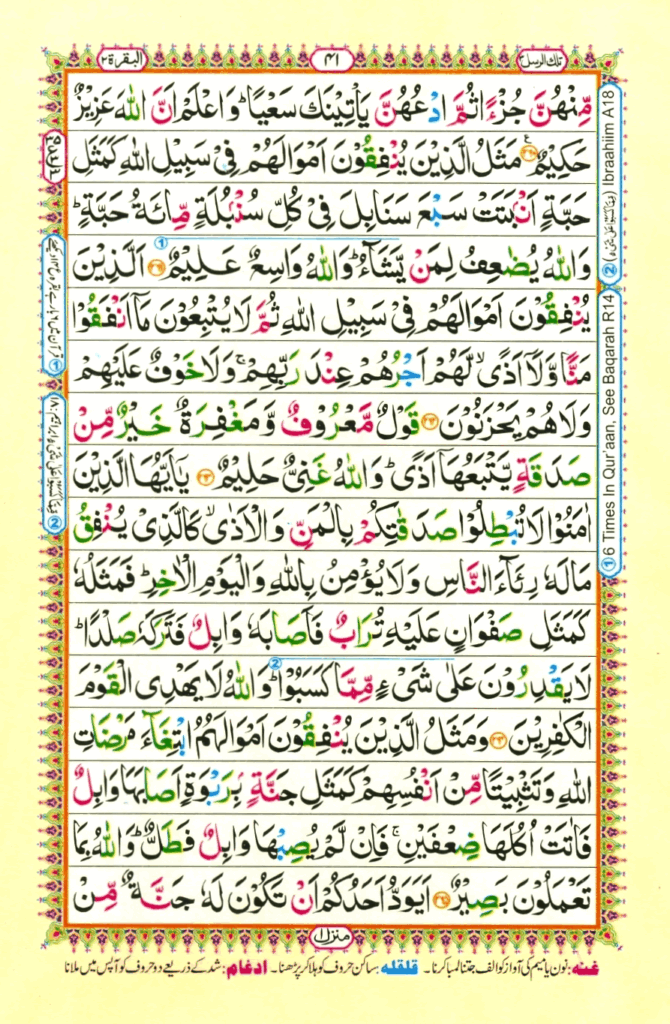 تلك الرسل ٣
٤١
البقرة ٢
مِّنْهُنَّ جُزْءًا ثُمَّ ادْعُهُنَّ يَاْتِيْنَكَ سَعْيًا ؕ وَاعْلَمْ اَنَّ اللّٰهَ عَزِيْزٌ
حَكِيْمٌ ۟ مَثَلُ الَّذِيْنَ يُنْفِقُوْنَ اَمْوَالَهُمْ فِيْ سَبِيْلِ اللّٰهِ كَمَثَلِ
حَبَّةٍ اَنْۢبَتَتْ سَبْعَ سَنَابِلَ فِيْ كُلِّ سُنْۢبُلَةٍ مِّائَةُ حَبَّةٍ ؕ
وَاللّٰهُ يُضٰعِفُ لِمَنْ يَّشَآءُ ؕ وَاللّٰهُ وَاسِعٌ عَلِيْمٌ ۟ اَلَّذِيْنَ
يُنْفِقُوْنَ اَمْوَالَهُمْ فِيْ سَبِيْلِ اللّٰهِ ثُمَّ لَا يُتْبِعُوْنَ مَاۤ اَنْفَقُوْا
مَنًّا وَّلَاۤ اَذًى ۙ لَّهُمْ اَجْرُهُمْ عِنْدَ رَبِّهِمْ ۚ وَلَا خَوْفٌ عَلَيْهِمْ
وَلَا هُمْ يَحْزَنُوْنَ ۟ قَوْلٌ مَّعْرُوْفٌ وَّمَغْفِرَةٌ خَيْرٌ مِّنْ
صَدَقَةٍ يَّتْبَعُهَاۤ اَذًى ؕ وَاللّٰهُ غَنِيٌّ حَلِيْمٌ ۟ يٰۤاَيُّهَا الَّذِيْنَ
اٰمَنُوْا لَا تُبْطِلُوْا صَدَقٰتِكُمْ بِالْمَنِّ وَالْاَذٰى ۙ كَالَّذِيْ يُنْفِقُ
مَالَهٗ رِئَآءَ النَّاسِ وَلَا يُؤْمِنُ بِاللّٰهِ وَالْيَوْمِ الْاٰخِرِ ؕ فَمَثَلُهٗ
كَمَثَلِ صَفْوَانٍ عَلَيْهِ تُرَابٌ فَاَصَابَهٗ وَابِلٌ فَتَرَكَهٗ صَلْدًا ؕ
لَا يَقْدِرُوْنَ عَلٰى شَيْءٍ مِّمَّا كَسَبُوْا ؕ وَاللّٰهُ لَا يَهْدِي الْقَوْمَ
الْكٰفِرِيْنَ ۟ وَمَثَلُ الَّذِيْنَ يُنْفِقُوْنَ اَمْوَالَهُمُ ابْتِغَآءَ مَرْضَاتِ
اللّٰهِ وَتَثْبِيْتًا مِّنْ اَنْفُسِهِمْ كَمَثَلِ جَنَّةٍۭ بِرَبْوَةٍ اَصَابَهَا وَابِلٌ
فَاٰتَتْ اُكُلَهَا ضِعْفَيْنِ ۚ فَاِنْ لَّمْ يُصِبْهَا وَابِلٌ فَطَلٌّ ؕ وَاللّٰهُ بِمَا
تَعْمَلُوْنَ بَصِيْرٌ ۟ اَيَوَدُّ اَحَدُكُمْ اَنْ تَكُوْنَ لَهٗ جَنَّةٌ مِّنْ
منزل ١
① 6 Times In Qur'aan, See Baqarah R14
② Ibraahiim A18
غنه: نون یا میم کی آواز کو الف جتنا لمبا کرنا۔ قلقله: ساکن حروف کو ہلا کر پڑھنا۔ ادغام: شد کے ذریعے دو حروف کو آپس میں ملانا